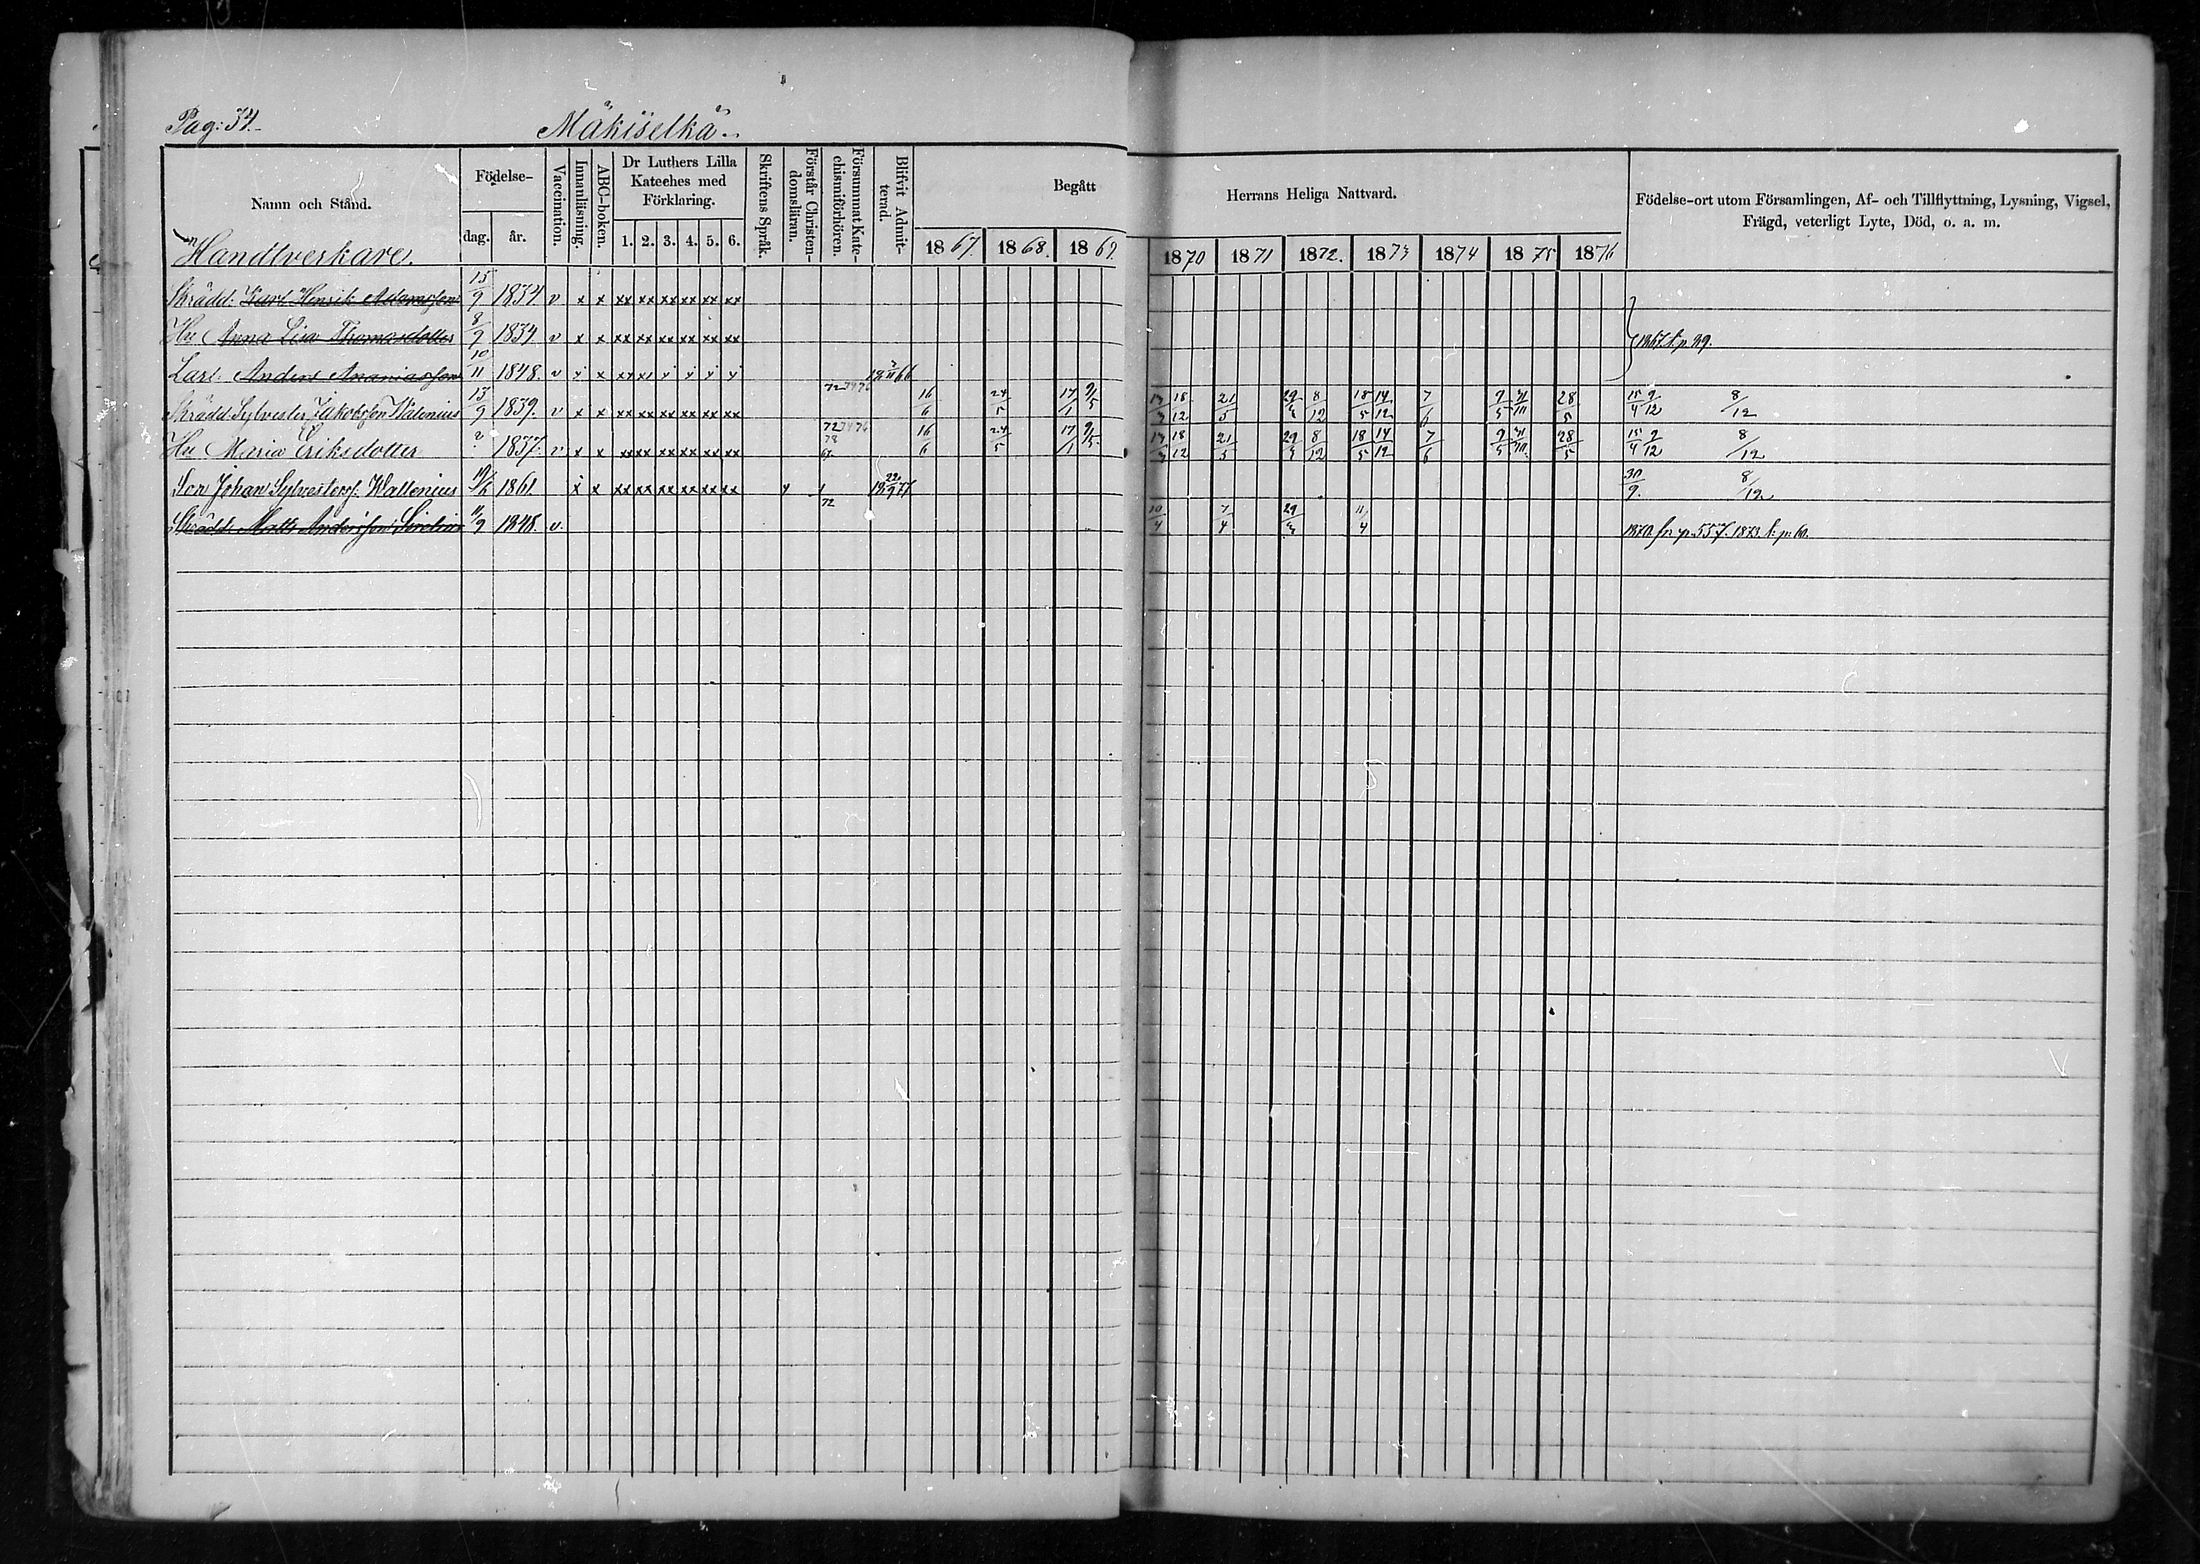 Pag: 37. Mäkiselkä
Namn och Stånd. Födelse- dag. år. Vaccination. Innanläsning. ABC-boken. Dr Luthers Lilla Kateches med Förklaring. 1. 2. 3. 4. 5. 6. Skriftens Språk. Förstår Christendomsläran. Försummat Katechismiförhören. Blifvit Admitterad. Begått Herrans Heliga Nattvard. Födelse-ort utom Församlingen, Af- och Tillflyttning, Lysning, Vigsel, Frägd, veterligt Lyte, Död, o. a. m.
1867. 1868. 1869. 1870 1871 1872. 1873 1874 1875 1876
Handtverkare.
Skrädd: Karl Henrik Adamsson 15/9 1834. v x x xx xx xx xx xx xx
Hu Anna Lisa Thomasdotter 8/9 1834. v x x xx xx xx xx xx xx 1867. t. p. 29.
Lärl: Anders Ananiasson 10/11 1848. v x x
Skrädd Sylvester Jakobsson Walenius 13/9 1839. v x x xx xx xx xx xx xx 72 74 76 16/6 24/5 17/1 9/5 18/12 21/5 29/4 8/12 18/5 14/12 7/6 9/5 28/5 15/4 9/12 8/12
Hu Maria Eriksdotter 1837. v x x xx xx xx xx xx xx 72 74 76 78 16/6 24/5 17/1 9/5 18/12 21/5 29/4 8/12 18/5 14/12 7/6 9/5 28/5 15/4 9/12 8/12
Son Johan Sylvesterss. Wallenius 1861. x x xx xx xx xx xx xx 18 22/9 77 30/9. 8/12
Skrädd. Matts Andersson 11/9 1848. v. 72 10/4 7/4 29/4 11/4 1870 fr. p. 557. 1873 t. p. 60.